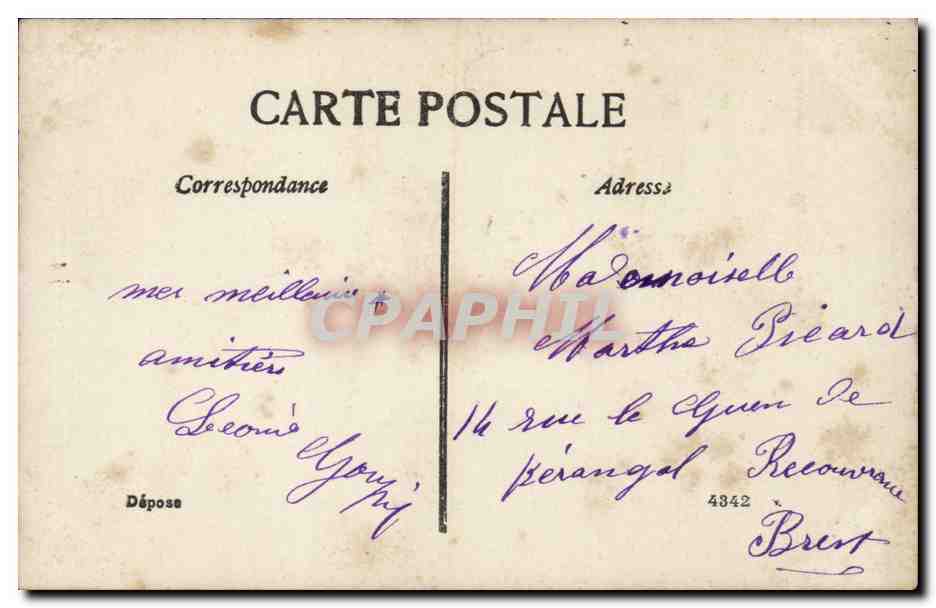 CARTE POSTALE
Correspondance
mes meilleures
amitiés
Léonie
Goupy
Déposé
Adresse
Mademoiselle
Marthe Picard
14 rue le Guen de
Kérangal Recouvrance
4342
Brest
CPAPHIL